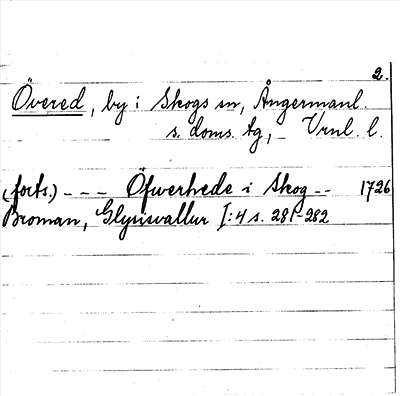 2.
Övered, by i Skogs sn, Ångermanl.
s. doms. tg, Vrnl. l.
(forts.) - - - Öfwerhede i Skog - - 1726
Broman, Glysisvallur I:4 s. 281-282